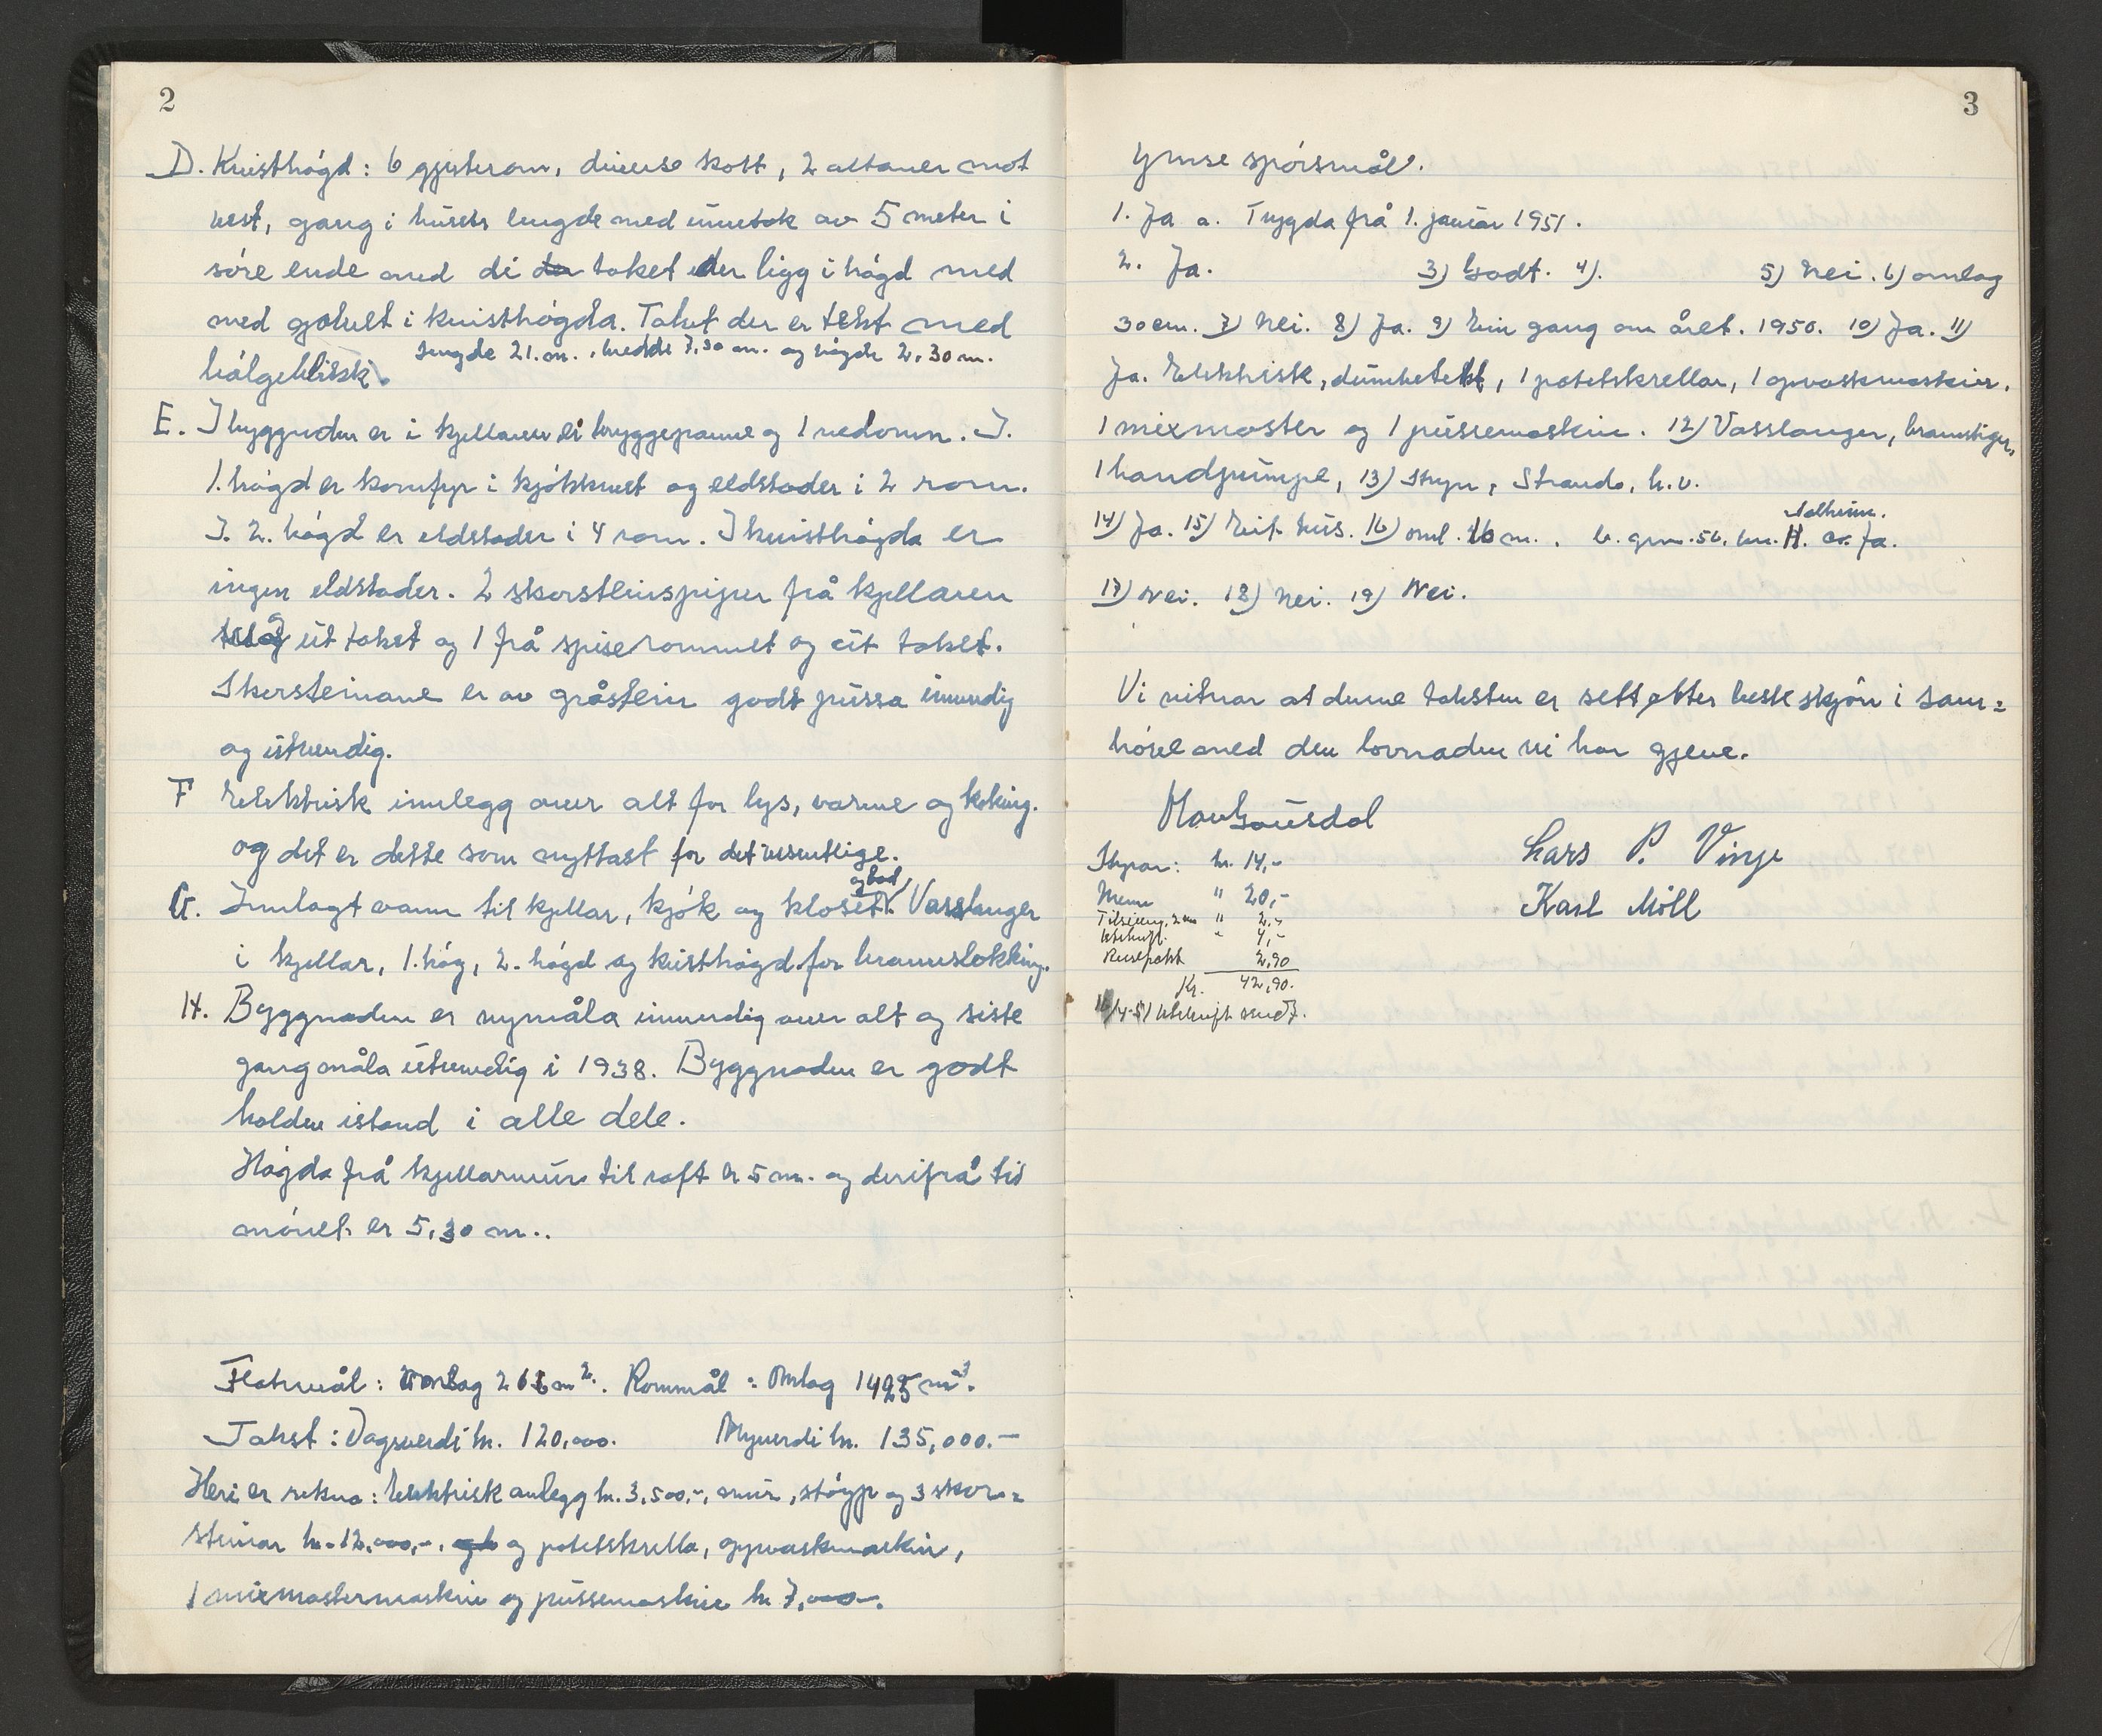 2
D. Kvisthøgd: 6 gjesterom, diverse kott, 2 altaner mot
vest, gang i husets lengde med unnetak av 5 meter i
søre ende med di der taket der ligg i høgd med
med golvet i kvisthøgda. Taket der er tekt med
lengde 21. m., bredde 7,30 m. og høgde 2,30 m.
bølgeblikk.
E. I byggnaden er i kjellaren ei bryggepanne og 1 vedomn. I.
1. høgd er komfyr i kjøkkenet og eldstader i 2 rom.
I. 2. høgd er eldstader i 4 rom. I kvisthøgda er
ingen eldstader. 2 skorsteinspiper frå kjellaren
og ut taket og 1 frå spiserommet og ut taket.
Skorsteinane er av gråstein godt pussa innvendig
og utvendig.
F Elektrisk innlegg over alt for lys, varme og koking.
og det er dette som nyttast for det vesentlige.
og bad
G. Innlagt vann til kjellar, kjøk og kloset. Vasslanger
i kjellar, 1. høg, 2. høgd og kvisthøgd for brannslokking.
H. Byggnaden er nymåla innvendig over alt og siste
gang måla utvendig i 1938. Byggnaden er godt
halden istand i alle dele.
Høgda frå kjellarmur til raft er 5 m. og derifrå til
mønet er 5,30 m..
Flatemål: Omlag 261 m². Rommål: Omlag 1425 m³.
Takst: Dagsverdi kr. 120,000. Nyverdi kr. 135,000.-
Heri er rekna: Elektrisk anlegg kr. 3,500,-, mur, støyp og 3 skor=
steinar kr. 12,000,-, og potetskrella, opvaskmaskin,
1 mixmastermaskin og pussemaskin kr 7,000.
3
Ymse spørsmål.
1. Ja a. Trygda frå 1. januar 1951.
2. Ja. 3) Godt. 4). 5) Nei. 6) omlag
30 cm. 7) Nei. 8) Ja. 9) Ein gang om året. 1950. 10) Ja. 11)
Ja. Elektrisk, 1 potetskrellar, 1 opvaskmaskin.
1 mixmaster og 1 pussemaskin. 12) Vasslanger, brannstiger,
1 handpumpe, 13) Stryn, Stranda, h.v.
Solheim.
14) Ja. 15) Eit hus. 16) oml. 16 m.. b. gnr. 56. bnr. H. a. Ja.
17) Nei. 18) Nei. 19) Nei.
Vi vitnar at denne taksten er sett etter beste skjøn i sam=
høve med den lovnaden vi har gjeve.
Lars P. Vinje
Karl Möll
Styrar: kr. 14,-
Menn " 20,-
2,-
Utskrift " 4,-
2,90
Kr. 42,90.
16/4-51 Utskrift sendt.